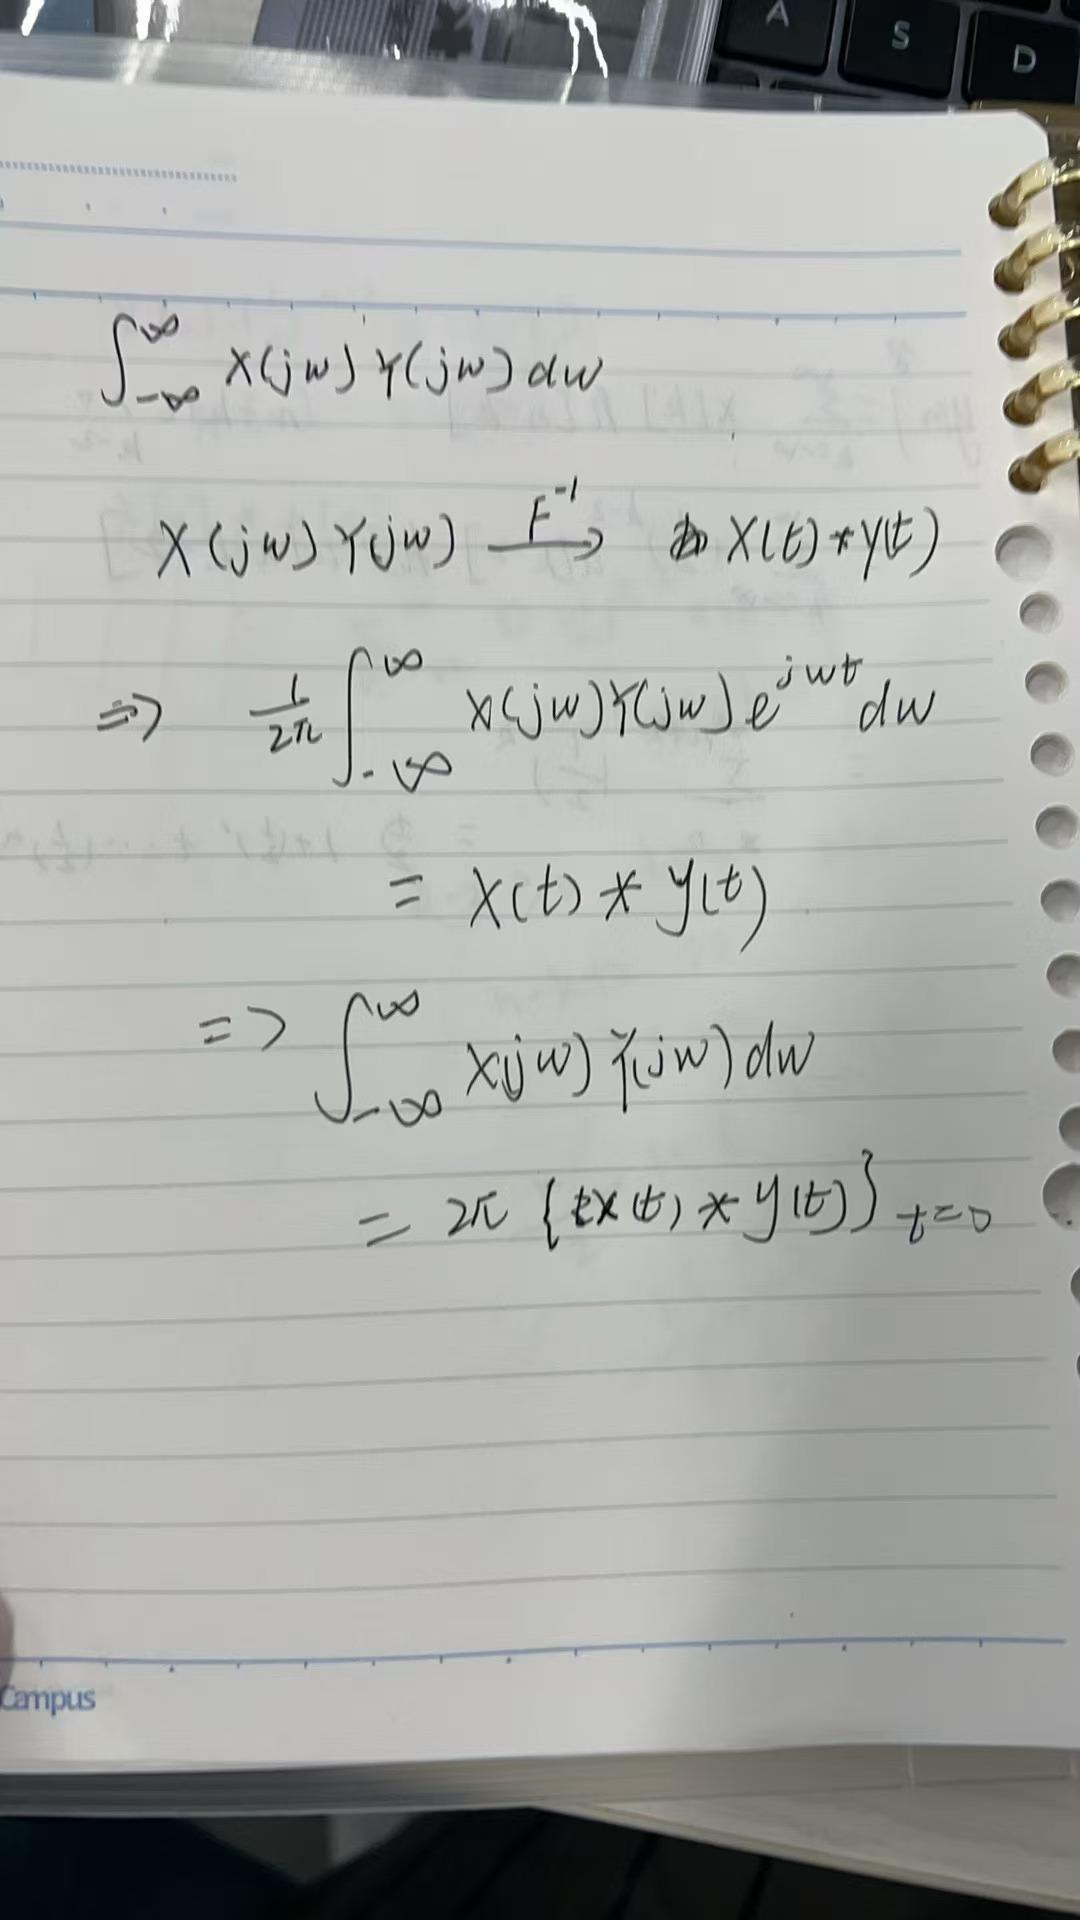 A S D
∫_{-∞}^{∞} X(jw) Y(jw) dw
X(jw) Y(jw) —F^{-1}→ x(t) * y(t)
=> 1/2π ∫_{-∞}^{∞} X(jw) Y(jw) e^{jwt} dw
= x(t) * y(t)
=> ∫_{-∞}^{∞} X(jw) Y(jw) dw
= 2π { x(t) * y(t) } t=0
Campus